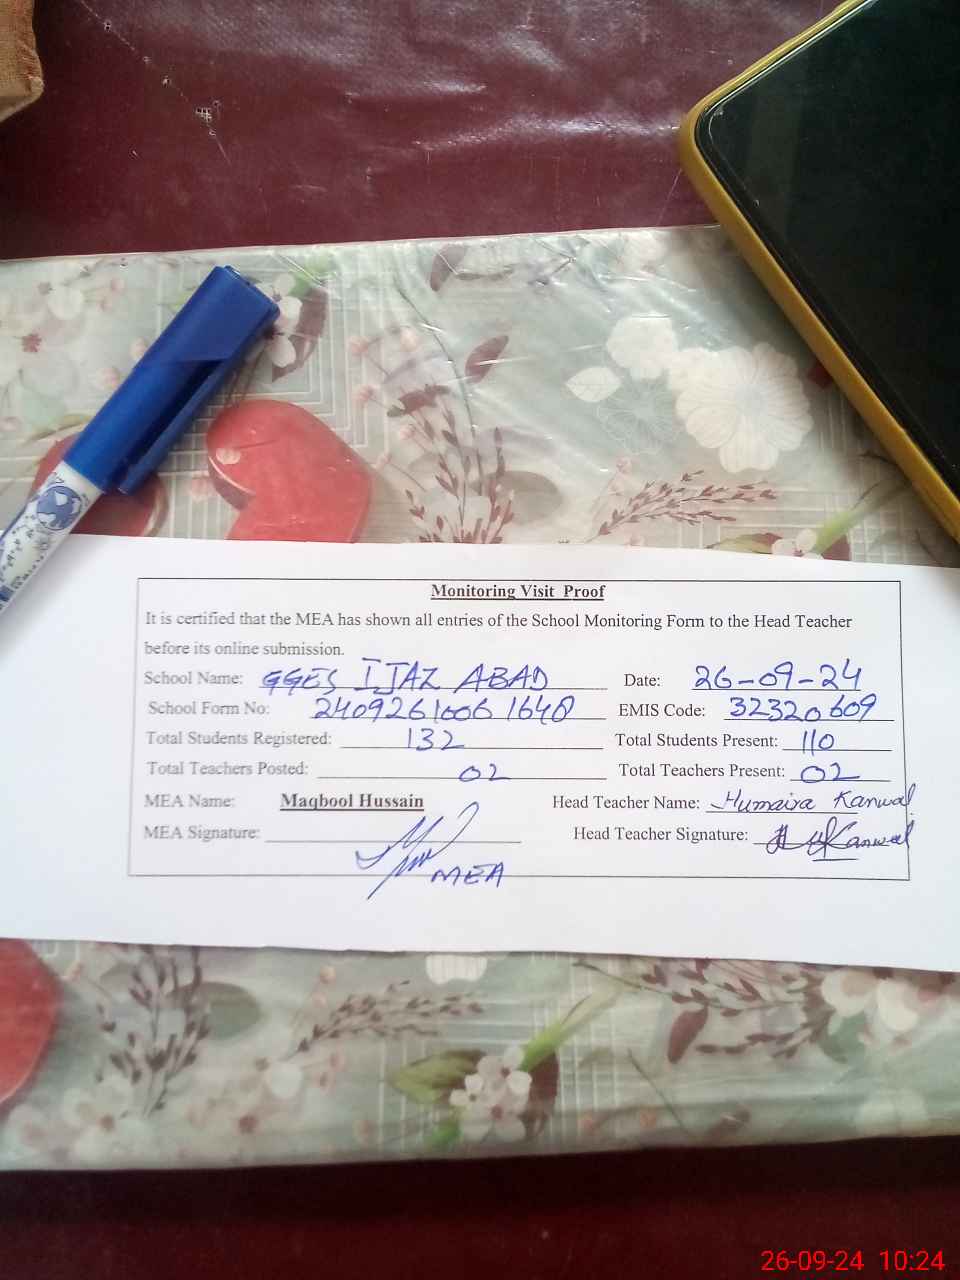 Monitoring Visit Proof
It is certified that the MEA has shown all entries of the School Monitoring Form to the Head Teacher
before its online submission.
School Name: GGES IJAZ ABAD Date: 26-09-24
School Form No: 2409261006 1648 EMIS Code: 32320609
Total Students Registered: 132 Total Students Present: 110
Total Teachers Posted: 02 Total Teachers Present: 02
MEA Name: Maqbool Hussain Head Teacher Name: Humaira Kanwal
MEA Signature: Head Teacher Signature: Kanwal
MEA
26-09-24 10:24